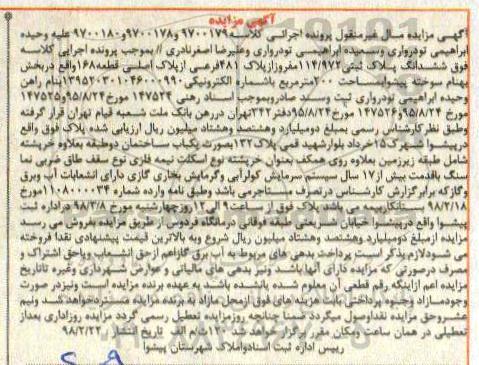 آگهی مزایده
آگهی مزایده مال غیرمنقول پرونده اجرائی کلاسه ۹۷۰۰۱۷۹و۹۷۰۰۱۷۸و۹۷۰۰۱۸۰ علیه وحیده
ابراهیمی تودرواری وسمیده ابراهیمی تودرواری وعلیرضا اصغرنادری // بموجب پرونده اجرایی کلاسه
فوق ششدانگ پلاک ثبتی۱۱۴/۹۷۲مفروزازپلاک ۴۸۱فرعی ازپلاک اصلی قطعه۱۶۸واقع دربخش
بهنام سوخته پیشوابمساحت ۲۰۰مترمربع باشماره الکترونیکی۱۳۹۵۲۰۳۰۱۰۴۶۰۰۰۹۹۰بنام راهن
وحیده ابراهیمی تودرواری ثبت وسند صادروبموجب اسناد رهنی ۱۴۷۵۲۴ مورخ۹۵/۸/۲۴و۱۴۷۵۲۵
مورخ ۹۵/۸/۲۴و۱۴۷۵۲۶ مورخ۹۵/۸/۲۴دفتر۲۴۲تهران دررهن بانک ملت شعبه قیام تهران قرار گرفته
وطبق نظرکارشناس رسمی بمبلغ دومیلیارد وهشتصد وهشتاد میلیون ریال ارزیابی شده پلاک فوق واقع
درپیشوا شهرک۱۵خرداد بلوارشهید قمی پلاک۱۳۲بصورت یکباب ساختمان دوطبقه بعلاوه خرپشته
شامل طبقه زیرزمین بعلاوه روی همکف بعنوان خرپشته نوع اسکلت نیمه فلزی نوع سقف طاق ضربی نما
سنگ باقدمت بیش از۱۷ سال سیستم سرمایش کولرآبی وگرمایش بخاری گازی دارای انشعابات آب وبرق
وگازکه برابرگزارش کارشناس درتصرف مستاجرمی باشد وطبق نامه وارده شماره ۱۱۰۸۰۰۰۰۳۴مورخ
۹۸/۲/۱۸ بستانکاربیمه می باشد پلاک فوق از ساعت۹ الی۱۲روزچهارشنبه مورخ ۹۸/۳/۸ دراداره ثبت
پیشوا واقع درپیشوا خیابان شریعتی طبقه فوقانی درمانگاه فردوس از طریق مزایده بفروش می رسد
مزایده ازمبلغ دومیلیارد وهشتصد وهشتاد میلیون ریال شروع وبه بالاترین قیمت پیشنهادی نقدا فروخته
می شودلازم بذکر است پرداخت بدهی های مربوط به آب برق گازاعم ازحق انشعاب ویاحق اشتراک و
مصرف درصورتی که مزایده دارای آنها باشد ونیز بدهی های مالیاتی و عوارض شهرداری وغیره تاتاریخ
مزایده اعم ازاینکه رقم قطعی آن معلوم شده یانشده باشد به عهده برنده مزایده است ونیزدر صورت
وجودمازاد وجوه پرداختی بابت هزینه های فوق ازمحل مازاد به برنده مزایده مستردخواهد شد ونیم
عشروحق مزایده نقداوصول میگردد ضمنا چنانچه روزمزایده تعطیل رسمی گردد مزایده روزاداری بعداز
تعطیلی در همان ساعت ومکان مقرر برگزارخواهد شد ۱۲۰م الف تاریخ انتشار: ۹۸/۲/۲۲
رییس اداره ثبت اسنادواملاک شهرستان پیشوا